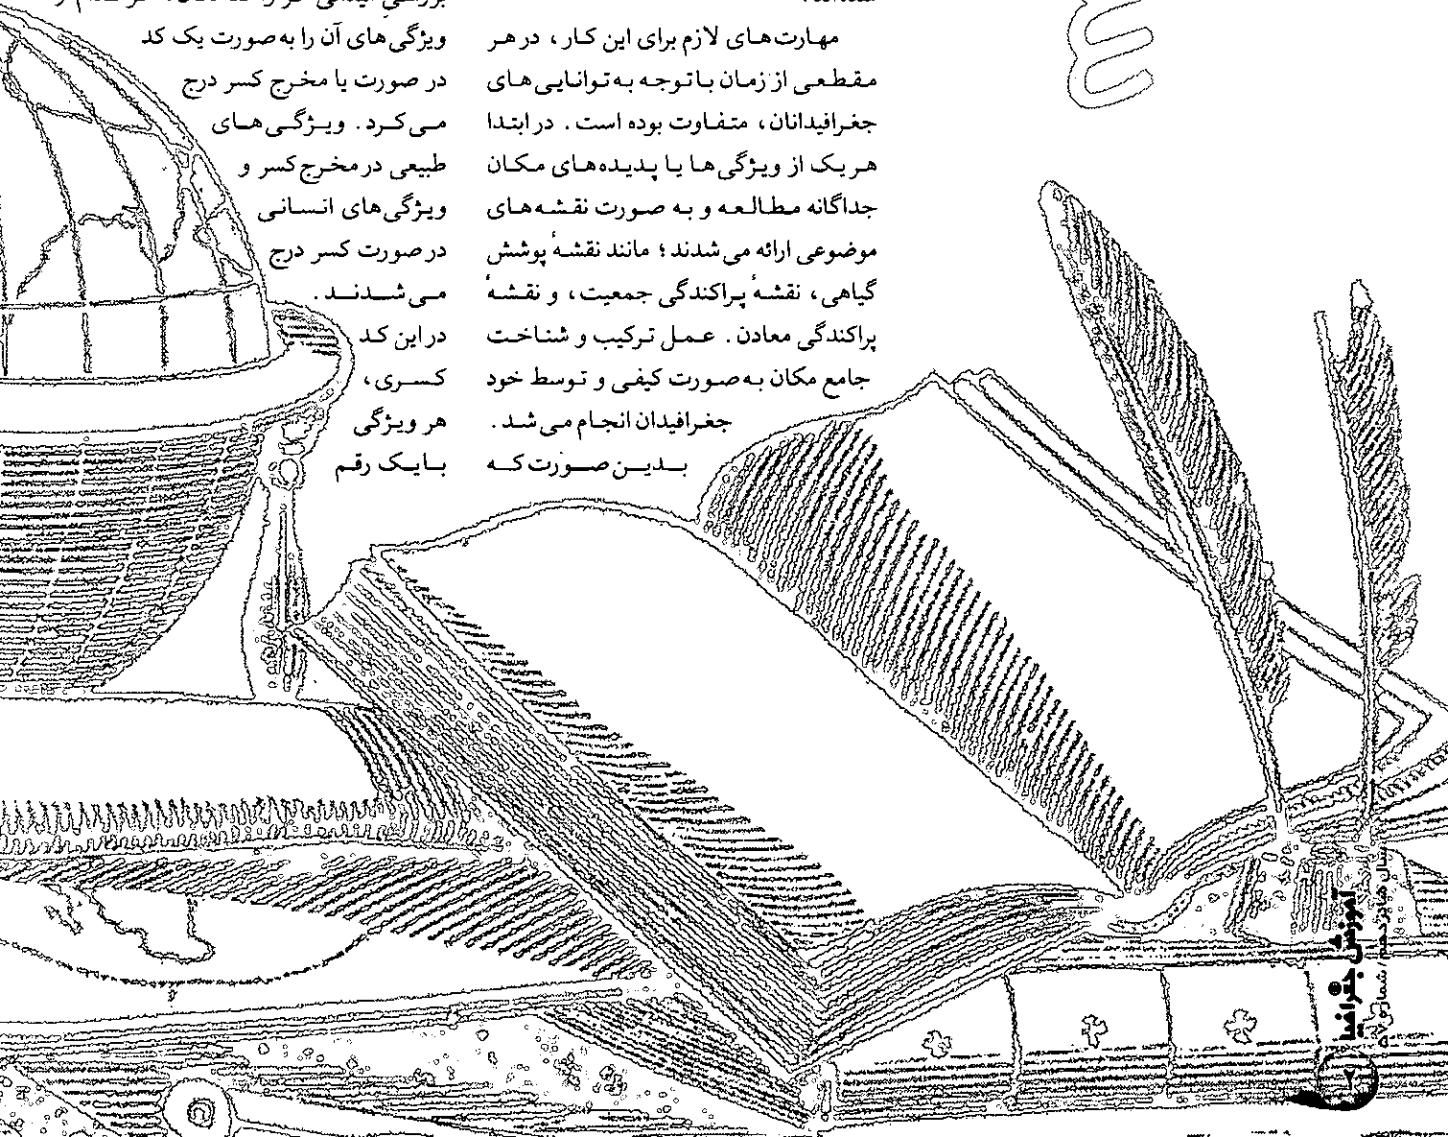 مهارت‌های لازم برای این کار، در هر
مقطعی از زمان با توجه به توانایی‌های
جغرافیدانان، متفاوت بوده است. در ابتدا
هر یک از ویژگی‌ها یا پدیده‌های مکان
جداگانه مطالعه و به صورت نقشه‌های
موضوعی ارائه می‌شدند؛ مانند نقشهٔ پوشش
گیاهی، نقشهٔ پراکندگی جمعیت، و نقشهٔ
پراکندگی معادن. عمل ترکیب و شناخت
جامع مکان به صورت کیفی و توسط خود
جغرافیدان انجام می‌شد.
بدین صورت که
ویژگی‌های آن را به صورت یک کد
در صورت یا مخرج کسر درج
می‌کرد. ویژگی‌های
طبیعی در مخرج کسر و
ویژگی‌های انسانی
در صورت کسر درج
می‌شدند.
در این کد
کسری،
هر ویژگی
با یک رقم
آموزش جغرافیا